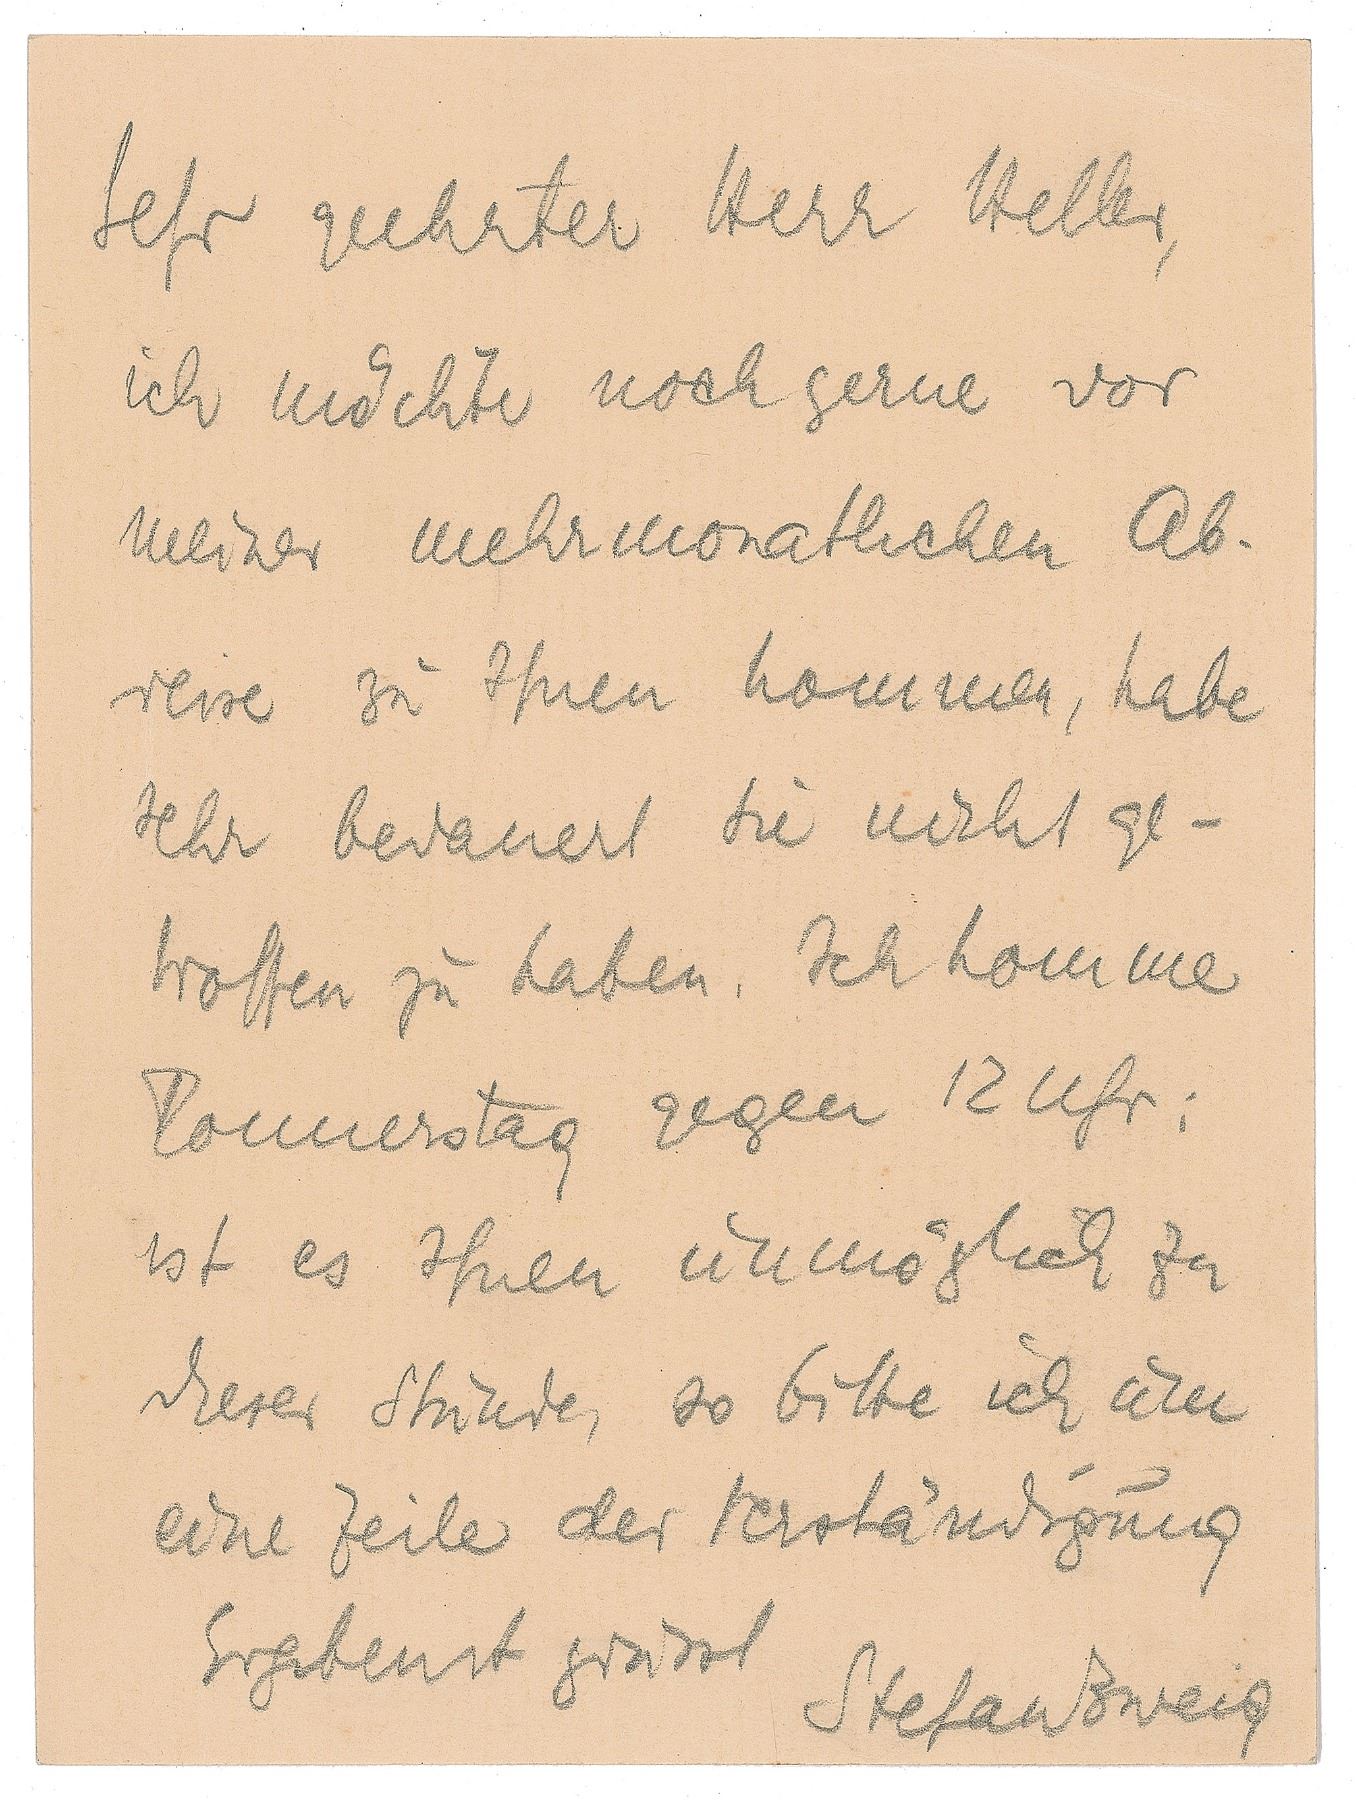 Sehr geehrter Herr Heller,
ich möchte noch gerne vor
meiner mehrmonatlichen Ab-
reise zu Ihnen kommen, habe
sehr bedauert Sie nicht ge-
troffen zu haben. Ich komme
Donnerstag gegen 12 Uhr;
ist es Ihnen unmöglich zu
dieser Stunde, so bitte ich um
eine Zeile der Verständigung
Ergebenst grüsst
Stefan Zweig